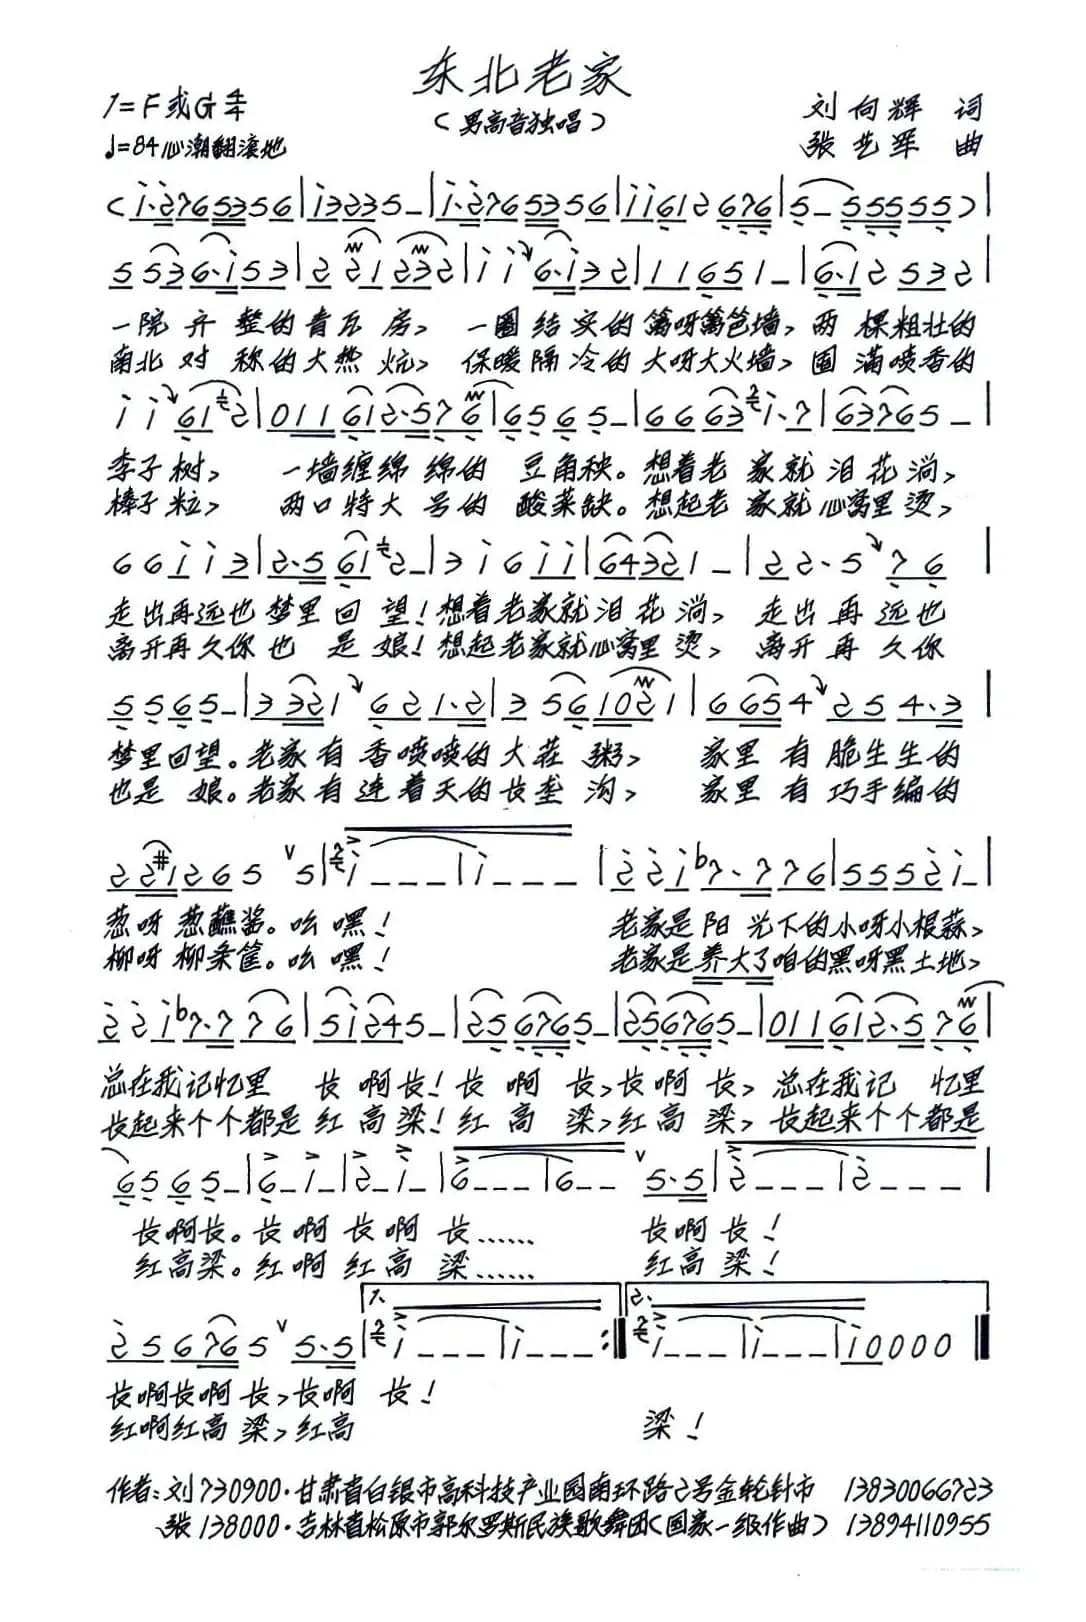 东北老家
(男高音独唱)
1=F或G 4/4
♩=84 心潮翻滚地
刘向辉 词
张艺军 曲
(i·2765356|i3235_|i·2765356|ii612676|5_55555)|
5536·i53|221232|ii6·i32|11651_|6·i2532|
一院齐整的青瓦房, 一圈结实的篱呀篱笆墙, 两棵粗壮的
南北对称的大热炕, 保暖隔冷的大呀大火墙, 囤满喷香的
ii612|011612·576|6565_|6663i·7|63765_|
李子树, 一墙缠绵绵的豆角秧。想着老家就泪花淌,
棒子粒, 两口特大号的酸菜缺。想起老家就心窝里烫,
66ii3|2·5612_|3i6ii|64321_|22·576|
走出再远也梦里回望!想着老家就泪花淌, 走出再远也
离开再久你也是娘!想起老家就心窝里烫, 离开再久你
5565_|33221|621·2|3561021|6654254·3|
梦里回望。老家有香喷喷的大茬粥, 家里有脆生生的
也是娘。老家有连着天的长垄沟, 家里有巧手编的
22#1265 v 5|i___|i___|22i♭7·776|5552i_|
葱呀葱蘸酱。吆嘿! 老家是阳光下的小呀小根蒜,
柳呀柳条筐。吆嘿! 老家是养大了咱的黑呀黑土地,
22i♭7·7776|5i245_|256765_|256765_|011612·576|
总在我记忆里 长啊长!长啊长,长啊长, 总在我记忆里
长起来个个都是红高粱!红高粱,红高粱, 长起来个个都是
6565_|6_1_|2_1_|6___|6__ v 5·5|2___|2___|
长啊长。长啊长啊长…… 长啊长!
红高粱。红啊红高粱…… 红高粱!
256765 v 5·5|1. i___|i___:|2. i___|i___|i0000|
长啊长啊长,长啊长!
红啊红高粱,红高 粱!
作者:刘 730900·甘肃省白银市高科技产业园南环路2号金轮针市 13830066723
张 138000·吉林省松原市郭尔罗斯民族歌舞团(国家一级作曲) 13894110955